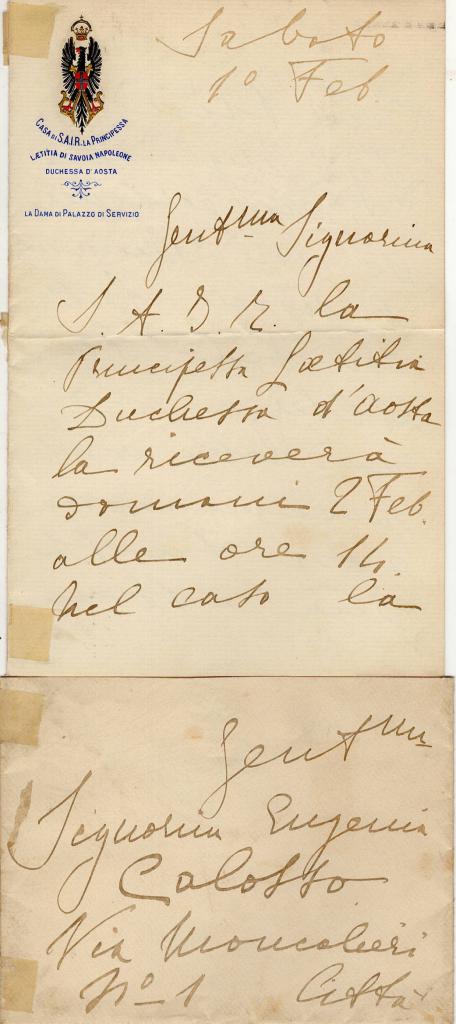 Sabato
1º Feb.
CASA DI S.A.I.R. LA PRINCIPESSA
LÆTITIA DI SAVOIA NAPOLEONE
DUCHESSA D'AOSTA
LA DAMA DI PALAZZO DI SERVIZIO
Gentma Signorina
S. A. I. R. la
Principessa Lætitia
Duchessa d'Aosta
la riceverà
domani 2 Feb.
alle ore 14.
Nel caso la
Gentma
Signorina Eugenia
Calosso
Via Moncalieri
Nº 1 Città